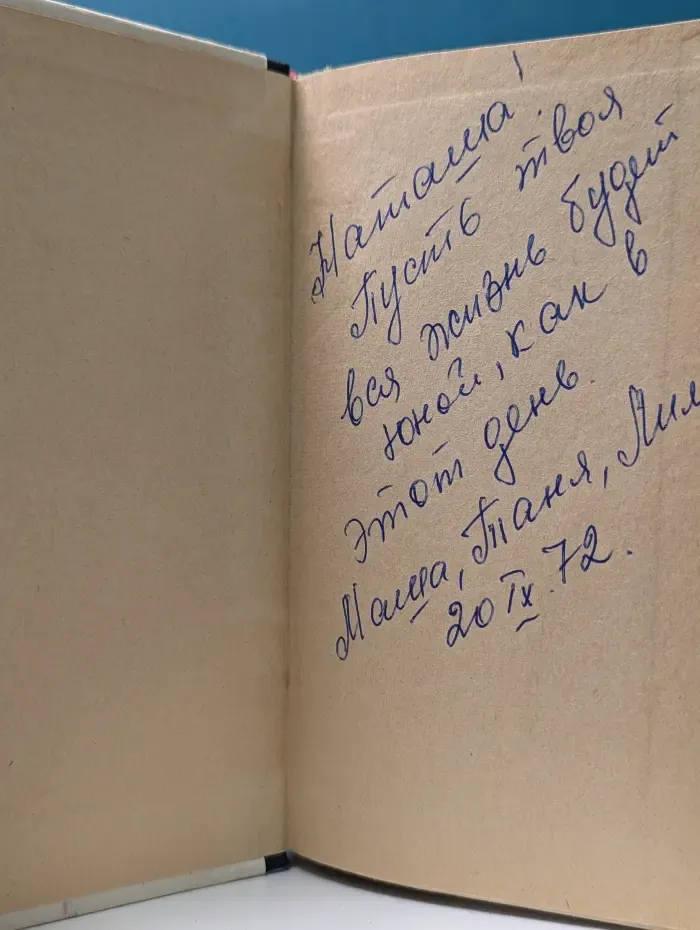 Наташа!
Пусть твоя
вся жизнь будет
юной, как в
этот день.
Маша, Таня,
20 IX. 72.